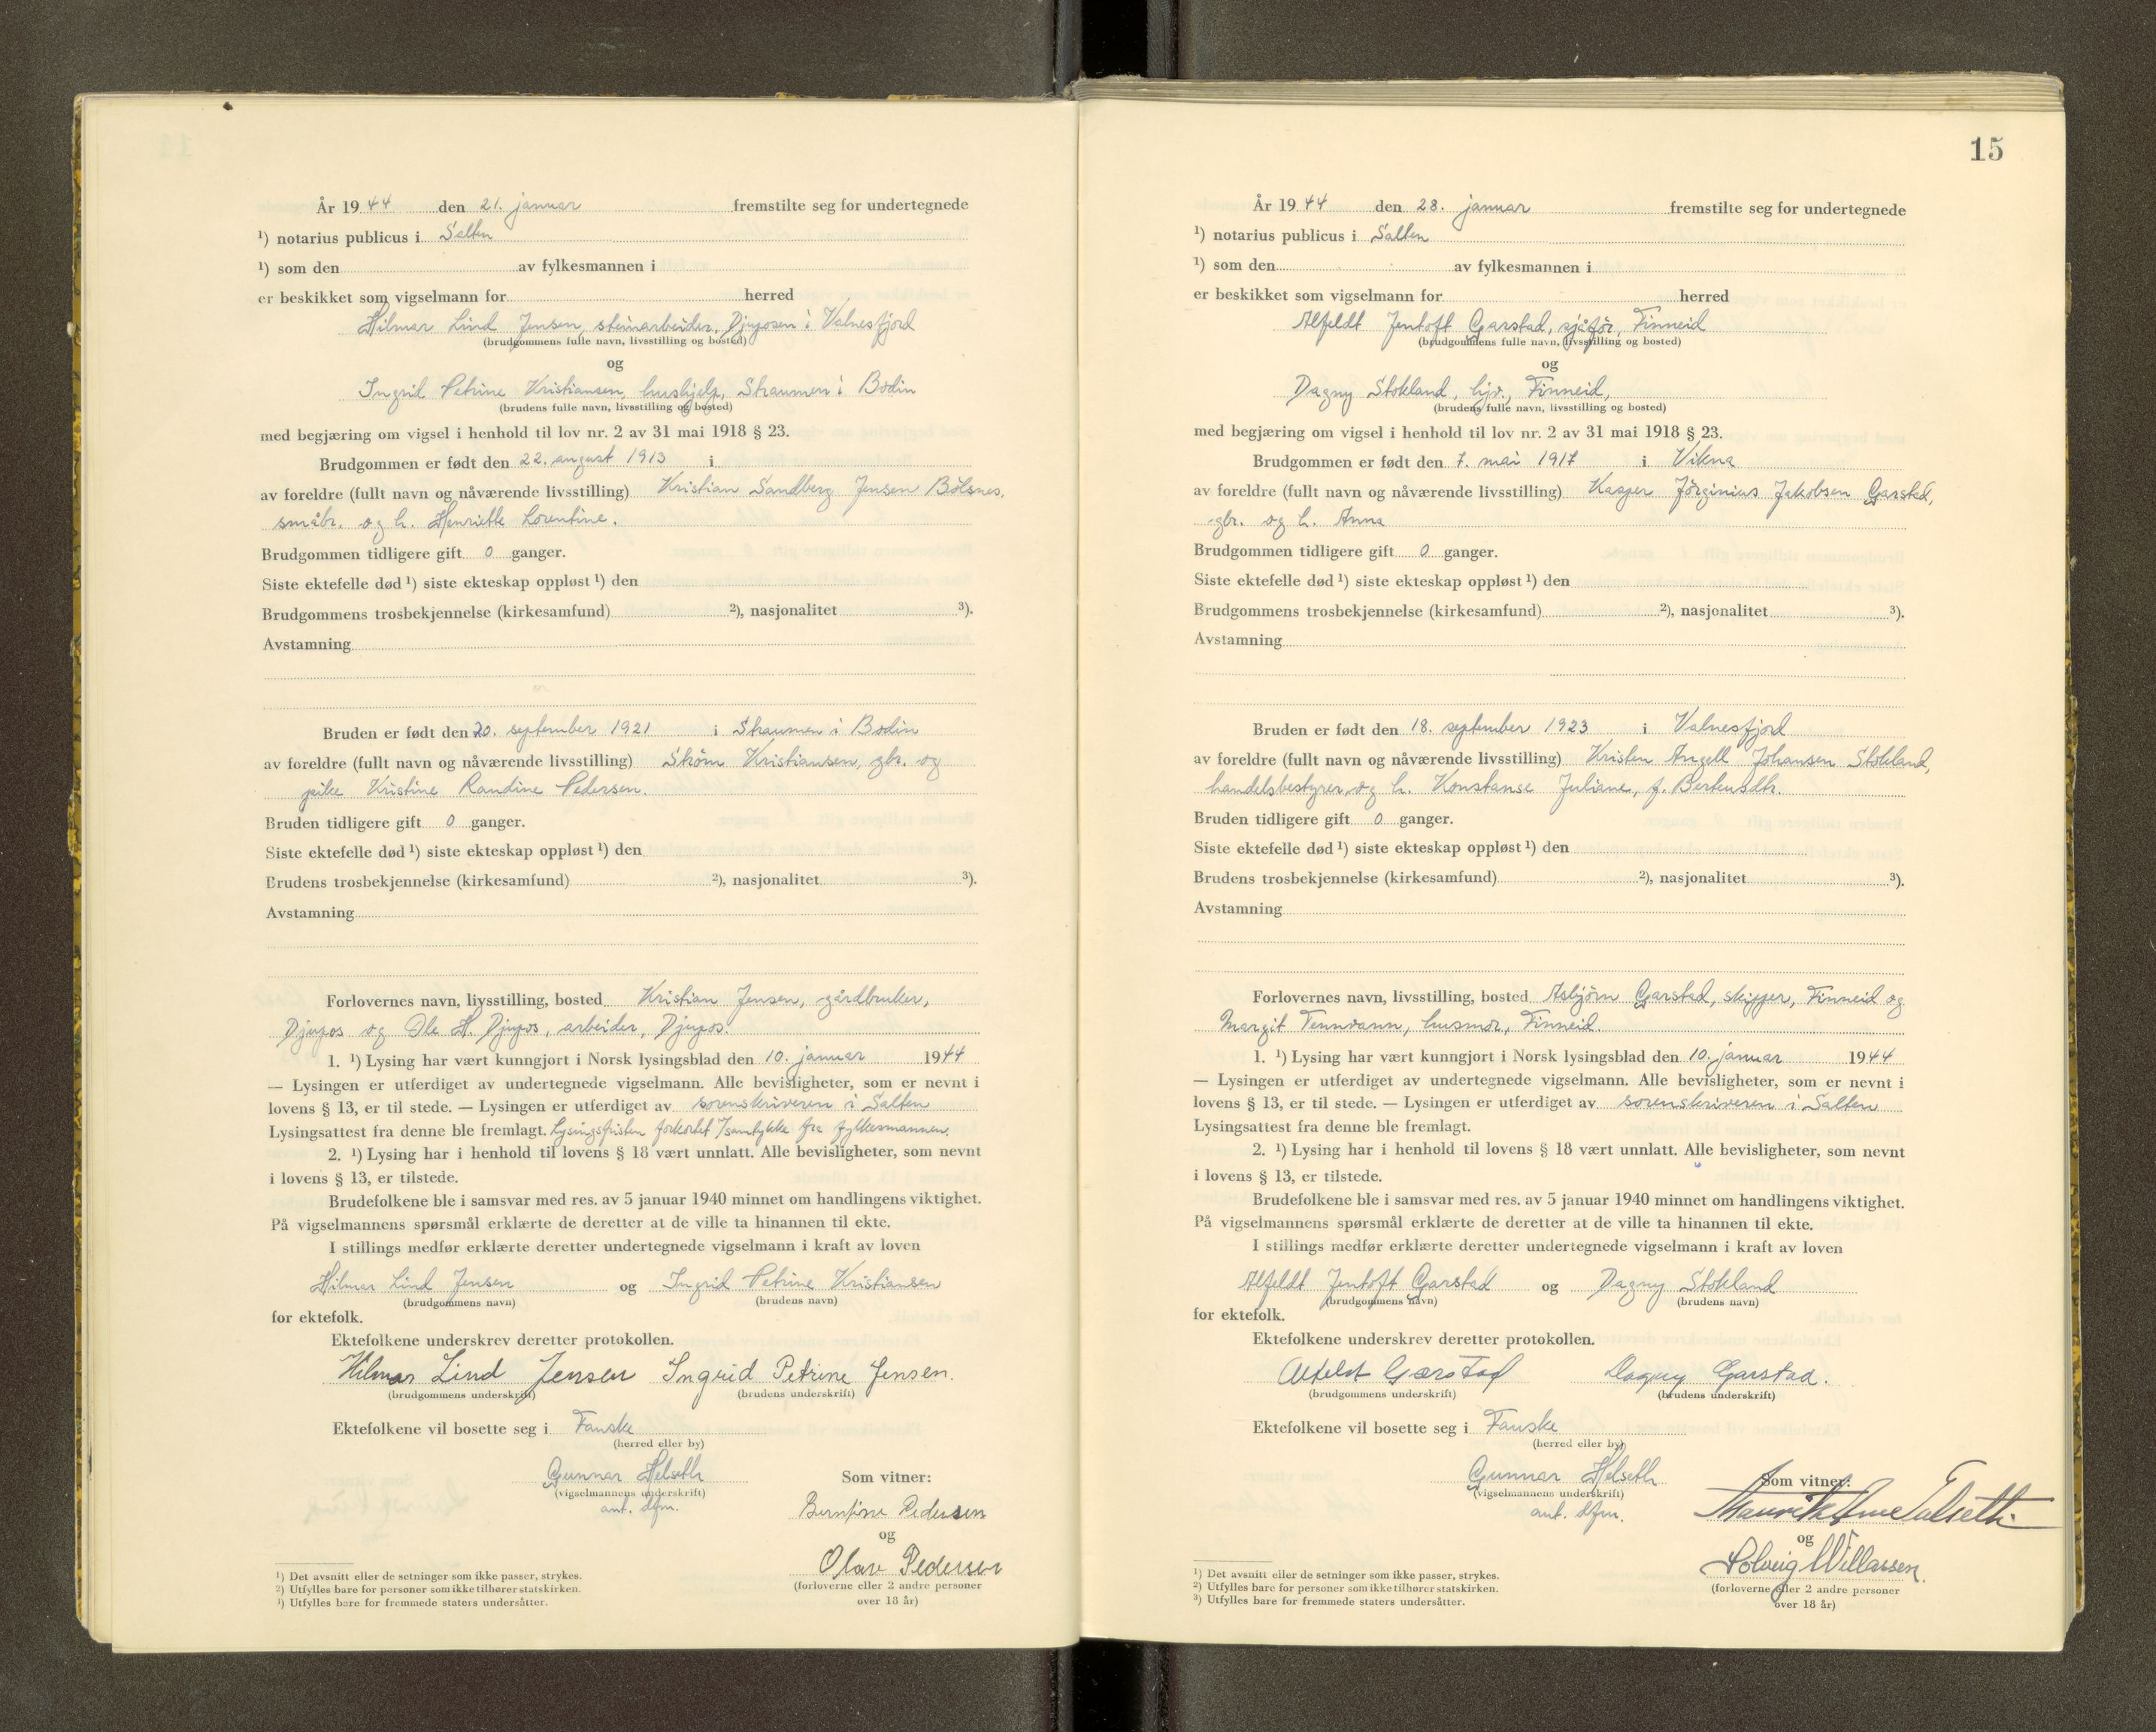 År 1944 den 21. januar fremstilte seg for undertegnede
¹) notarius publicus i Salten
¹) som den av fylkesmannen i
er beskikket som vigselmann for herred
Hilmar Lind Jensen, steinarbeider, Djupos i Valnesfjord
(brudgommens fulle navn, livsstilling og bosted)
og
Ingrid Petrine Kristiansen, hushjelp, Straumen i Bodin
(brudens fulle navn, livsstilling og bosted)
med begjæring om vigsel i henhold til lov nr. 2 av 31 mai 1918 § 23.
Brudgommen er født den 22. august 1913 i
av foreldre (fullt navn og nåværende livsstilling) Kristian Sandberg Jensen Bölsnes,
småbr. og h. Henriette Lorentine.
Brudgommen tidligere gift 0 ganger.
Siste ektefelle død ¹) siste ekteskap oppløst ¹) den
Brudgommens trosbekjennelse (kirkesamfund) ²), nasjonalitet ³).
Avstamning
Bruden er født den 20. september 1921 i Straumen i Bodin
av foreldre (fullt navn og nåværende livsstilling) Ström Kristiansen, gbr. og
pike Kristine Randine Pedersen.
Bruden tidligere gift 0 ganger.
Siste ektefelle død ¹) siste ekteskap oppløst ¹) den
Brudens trosbekjennelse (kirkesamfund) ²), nasjonalitet ³).
Avstamning
Forlovernes navn, livsstilling, bosted Kristian Jensen, gårdbruker,
Djupos og Ole H. Djupos, arbeider, Djupos.
1. ¹) Lysing har vært kunngjort i Norsk lysingsblad den 10. januar 1944
— Lysingen er utferdiget av undertegnede vigselmann. Alle bevisligheter, som er nevnt i
lovens § 13, er til stede. — Lysingen er utferdiget av sorenskriveren i Salten
Lysingsattest fra denne ble fremlagt. Lysingsfristen forkortet m/samtykke fra fylkesmannen.
2. ¹) Lysing har i henhold til lovens § 18 vært unnlatt. Alle bevisligheter, som nevnt
i lovens § 13, er tilstede.
Brudefolkene ble i samsvar med res. av 5 januar 1940 minnet om handlingens viktighet.
På vigselmannens spørsmål erklærte de deretter at de ville ta hinannen til ekte.
I stillings medfør erklærte deretter undertegnede vigselmann i kraft av loven
Hilmar Lind Jensen og Ingrid Petrine Kristiansen
(brudgommens navn) (brudens navn)
for ektefolk.
Ektefolkene underskrev deretter protokollen.
Hilmar Lind Jensen Ingrid Petrine Jensen.
(brudgommens underskrift) (brudens underskrift)
Ektefolkene vil bosette seg i Fauske
(herred eller by)
Gunnar Helseth Som vitner:
(vigselmannens underskrift)
aut. dfm.
Pedersen
og
Olav Pedersen
(forloverne eller 2 andre personer
over 18 år)
¹) Det avsnitt eller de setninger som ikke passer, strykes.
²) Utfylles bare for personer som ikke tilhører statskirken.
³) Utfylles bare for fremmede staters undersåtter.
15
År 1944 den 28. januar fremstilte seg for undertegnede
¹) notarius publicus i Salten
¹) som den av fylkesmannen i
er beskikket som vigselmann for herred
Alfeldt Jentoft Garstad, sjåför, Finneid
(brudgommens fulle navn, livsstilling og bosted)
og
Dagny Stokland, hjv., Finneid,
(brudens fulle navn, livsstilling og bosted)
med begjæring om vigsel i henhold til lov nr. 2 av 31 mai 1918 § 23.
Brudgommen er født den 7. mai 1917 i Vikna
av foreldre (fullt navn og nåværende livsstilling) Kasper Jörginius Jakobsen Garstad,
gbr. og h. Anna
Brudgommen tidligere gift 0 ganger.
Siste ektefelle død ¹) siste ekteskap oppløst ¹) den
Brudgommens trosbekjennelse (kirkesamfund) ²), nasjonalitet ³).
Avstamning
Bruden er født den 18. september 1923 i Valnesfjord
av foreldre (fullt navn og nåværende livsstilling) Kristen Angell Johansen Stokland,
handelsbestyrer, og h. Konstanse Juliane, f. Bertensdtr.
Bruden tidligere gift 0 ganger.
Siste ektefelle død ¹) siste ekteskap oppløst ¹) den
Brudens trosbekjennelse (kirkesamfund) ²), nasjonalitet ³).
Avstamning
Forlovernes navn, livsstilling, bosted Asbjörn Garstad, skipper, Finneid og
Margit Tennvann, husmor, Finneid.
1. ¹) Lysing har vært kunngjort i Norsk lysingsblad den 10. januar 1944
— Lysingen er utferdiget av undertegnede vigselmann. Alle bevisligheter, som er nevnt i
lovens § 13, er til stede. — Lysingen er utferdiget av sorenskriveren i Salten
Lysingsattest fra denne ble fremlagt.
2. ¹) Lysing har i henhold til lovens § 18 vært unnlatt. Alle bevisligheter, som nevnt
i lovens § 13, er tilstede.
Brudefolkene ble i samsvar med res. av 5 januar 1940 minnet om handlingens viktighet.
På vigselmannens spørsmål erklærte de deretter at de ville ta hinannen til ekte.
I stillings medfør erklærte deretter undertegnede vigselmann i kraft av loven
Alfeldt Jentoft Garstad og Dagny Stokland
(brudgommens navn) (brudens navn)
for ektefolk.
Ektefolkene underskrev deretter protokollen.
Alfeldt Garstad Dagny Garstad.
(brudgommens underskrift) (brudens underskrift)
Ektefolkene vil bosette seg i Fauske
(herred eller by)
Gunnar Helseth Som vitner:
(vigselmannens underskrift)
aut. dfm.
og
Solveig Willassen.
(forloverne eller 2 andre personer
over 18 år)
¹) Det avsnitt eller de setninger som ikke passer, strykes.
²) Utfylles bare for personer som ikke tilhører statskirken.
³) Utfylles bare for fremmede staters undersåtter.